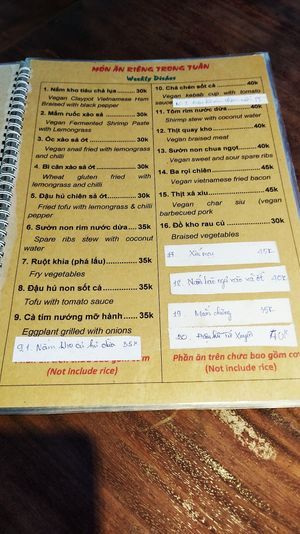 MÓN ĂN RIÊNG TRONG TUẦN
Weekly Dishes
1. Nấm kho tiêu chả lụa ........ 30k
Vegan Claypot Vietnamese Ham
Braised with black pepper
2. Mắm ruốc xào sả ............... 30k
Vegan Fermented Shrimp Paste
with Lemongrass
3. Ốc xào sả ớt ...................... 30k
Vegan snail fried with lemongrass
and chilli
4. Bì căn xào sả ớt ................ 30k
Wheat gluten fried with
lemongrass and chilli
5. Đậu hủ chiên sả ớt ............ 30k
Fried tofu with lemongrass & chilli
pepper
6. Sườn non rim nước dừa.... 35k
Spare ribs stew with coconut
water
7. Ruột khìa (phá lấu) ............ 35k
Fry vegetables
8. Đậu hủ non sốt cà ............. 35k
Tofu with tomato sauce
9. Cà tím nướng mỡ hành ...... 35k
Eggplant grilled with onions
9.1. Nấm kho 35k
(Not include rice)
10. Chả chiên sốt cà ................ 40k
Vegan kebab cup with tomato
sauce
11. Tôm rim nước dừa ............ 40k
Shrimp stew with coconut water
12. Thịt quay kho .................... 40k
Vegan braised meat
13. Sườn non chua ngọt .......... 40k
Vegan sweet and sour spare ribs
14. Ba rọi chiên ...................... 45k
Vegan vietnamese fried bacon
15. Thịt xá xíu ........................ 45k
Vegan char siu (vegan
barbecued pork
16. Đồ kho rau củ ................... 30k
Braised vegetables
17. 45k
18. Nấm xào sả ớt 40k
19. Măng 35k
20. Đậu hủ Tứ Xuyên 40k
Phần ăn trên chưa bao gồm cơ
(Not include rice)